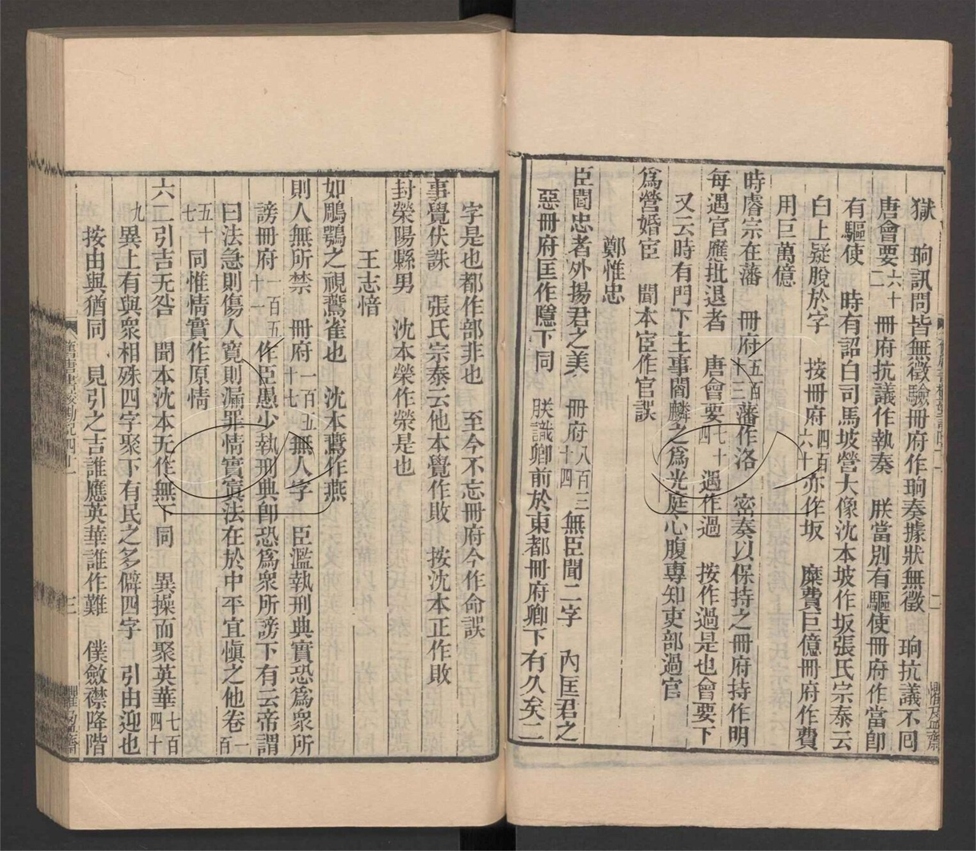 獄　珦訊問皆無徵驗冊府作珦奏據狀無徵　珦抗議不囘
唐會要六十二冊府抗議作執奏　朕當別有驅使冊府作當卽
有驅使　時有詔白司馬坡營大像沈本坡作坂張氏宗泰云
白上疑脫於字　按冊府四百六十亦作坂　糜費巨億冊府作費
用巨萬億
時睿宗在藩　冊府五百十三藩作洛　密奏以保持之冊府持作明
每遇官應批退者　唐會要七十四遇作過　按作過是也會要下
又云時有門下主事閻麟之爲光庭心腹專知吏部過官
爲營婚宦　聞本宦作官誤
鄭惟忠
臣聞忠者外揚君之美　冊府八百三十四無臣聞二字　內匡君之
惡冊府匡作隱下同　朕識卿前於東都冊府卿下有久矣二
字是也都作部非也　至今不忘冊府今作命誤
事覺伏誅　張氏宗泰云他本覺作敗　按沈本正作敗
封榮陽縣男　沈本榮作滎是也
王志愔
如鵰鶚之視鷰雀也　沈本鷰作燕
則人無所禁　冊府一百五十七無人字　臣濫執刑典實恐爲衆所
謗冊府一百五十一作臣愚少執刑典卽恐爲衆所謗下有云帝謂
曰法急則傷人寬則漏罪情實寘法在於中平宜愼之他卷一百
五十七同惟情實作原情
六二引吉无咎　聞本沈本无作無下同　異操而聚英華七百四十
九異上有與衆相殊四字聚下有民之多僻四字　引由迎也
按由與猶同　見引之吉誰應英華誰作難　僕斂襟降階
舊唐書校勘記四十一
三
懼盈齋